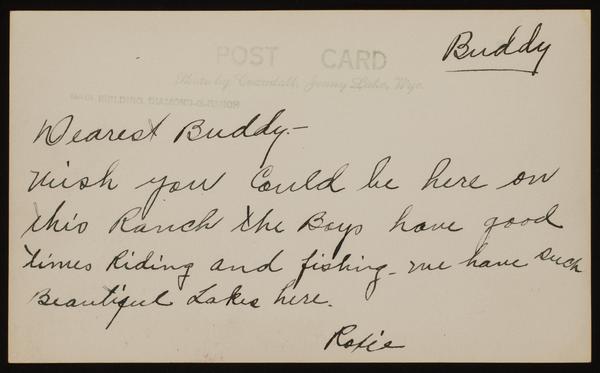 Buddy
POST CARD
Photo by Crandall, Jenny Lake, Wyo.
MAIN BUILDING, DIAMOND-G-RANCH
Dearest Buddy.-
Wish you could be here on
this Ranch the Boys have good
times Riding and fishing - we have such
Beautiful Lakes here.